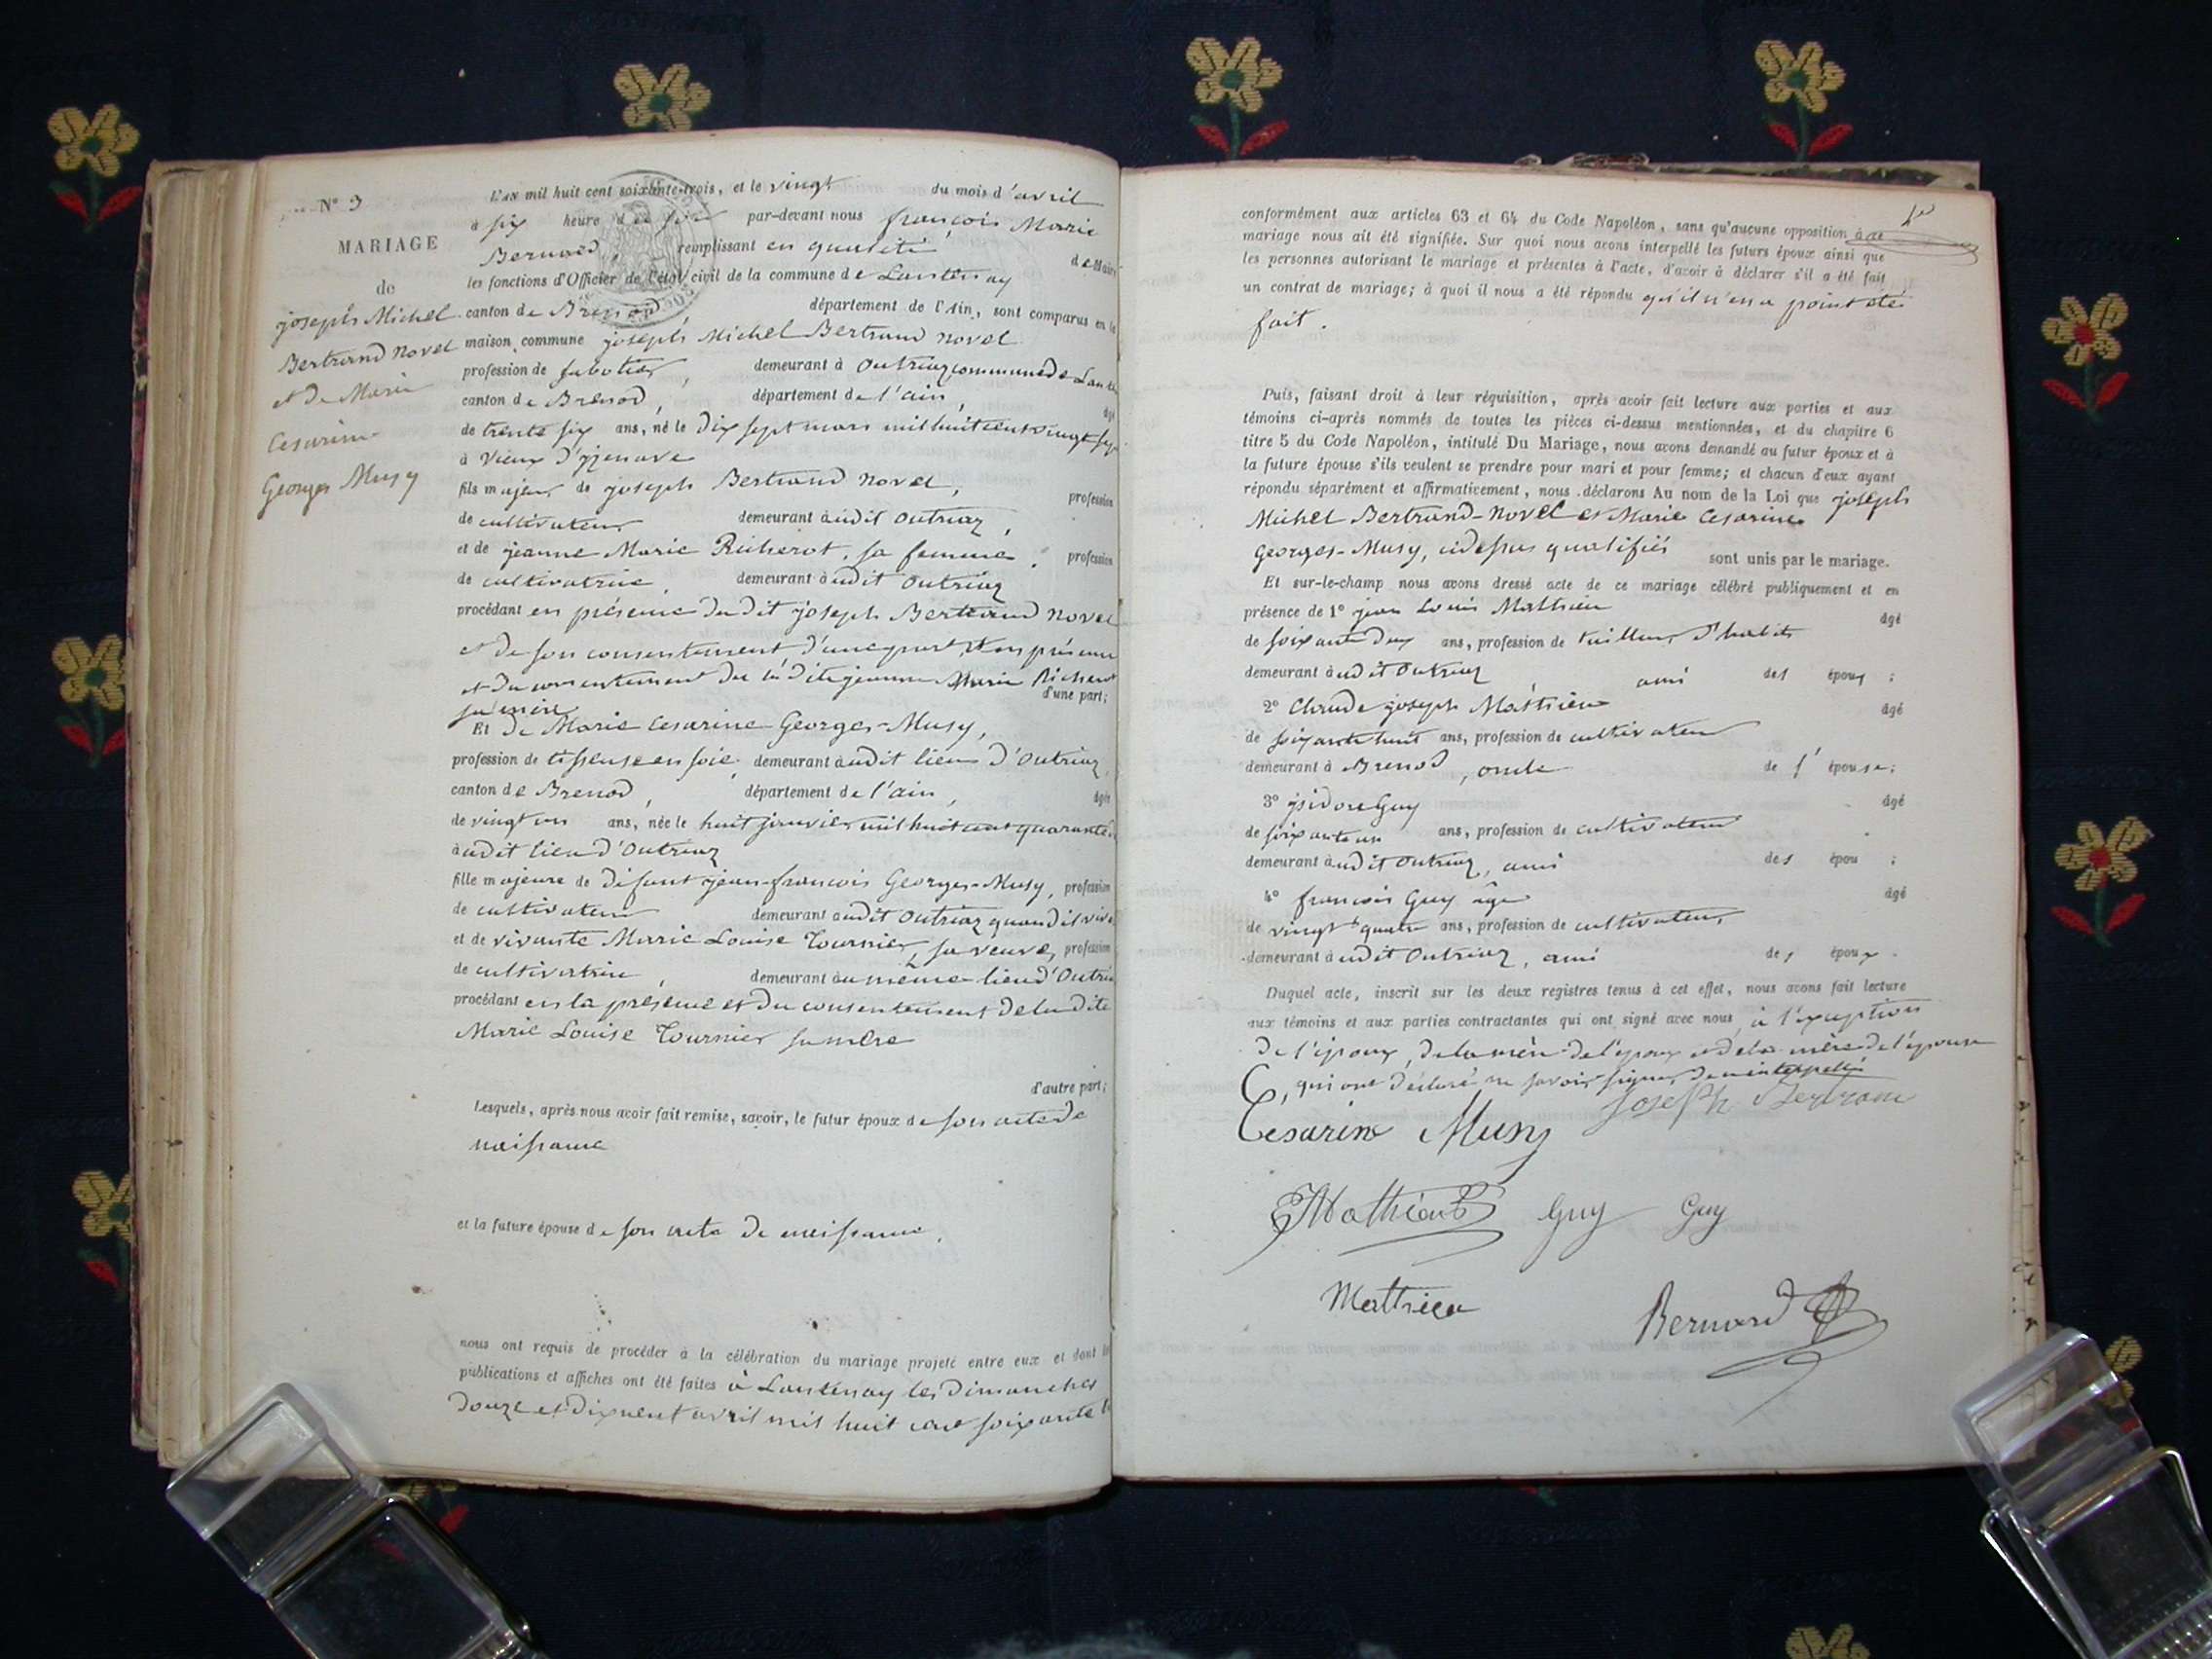 N° 3
MARIAGE
de
joseph Michel
Bertrand Novel
et de Marie
Cesarine
Georges Musy
L'AN mil huit cent soixante-trois, et le vingt du mois d'avril
à six heure du soir par-devant nous françois Marie
Bernard, remplissant en qualité de Maire
les fonctions d'Officier de l'état civil de la commune de Lantenay
canton de Brenod, département de l'Ain, sont comparus en la
maison commune joseph Michel Bertrand novel
profession de sabotier, demeurant à Outriaz commune de Lan
canton de Brenod, département de l'ain, âgé
de trente six ans, né le dix sept mars mil huit cent vingt sep
à Vieux d'yzenave
fils majeur de joseph Bertrand novel, profession
de cultivateur demeurant à udit Outriaz,
et de jeanne Marie Richerot, sa femme, profession
de cultivatrice demeurant à udit Outriaz
procédant en présence dudit joseph Bertrand Novel
et de son consentement d'une part, et en présence
et du consentement de la dite jeanne Marie Richerot
sa mère d'une part;
Et de Marie Cesarine Georges-Musy,
profession de tisseuse en soie, demeurant à udit lieu d'Outriaz
canton de Brenod, département de l'ain, âgée
de vingt un ans, née le huit janvier mil huit cent quarante
à udit lieu d'Outriaz
fille majeure de défunt jean-françois Georges-Musy, profession
de cultivateur demeurant audit Outriaz quand il viv
et de vivante Marie Louise Tournier, sa veuve, profession
de cultivatrice, demeurant au même lieu d'Outri
procédant en la présence et du consentement de la dite
Marie Louise Tournier sa mère
d'autre part;
Lesquels, après nous avoir fait remise, savoir, le futur époux de son acte de
naissance
et la future épouse de son acte de naissance,
nous ont requis de procéder à la célébration du mariage projeté entre eux et dont les
publications et affiches ont été faites à Lantenay les dimanches
douze et dixneuf avril mil huit cent soixante t
conformément aux articles 63 et 64 du Code Napoléon, sans qu'aucune opposition à ce
mariage nous ait été signifiée. Sur quoi nous avons interpellé les futurs époux ainsi que
les personnes autorisant le mariage et présentes à l'acte, d'avoir à déclarer s'il a été fait
un contrat de mariage; à quoi il nous a été répondu qu'il n'en a point été
fait.
Puis, faisant droit à leur réquisition, après avoir fait lecture aux parties et aux
témoins ci-après nommés de toutes les pièces ci-dessus mentionnées, et du chapitre 6
titre 5 du Code Napoléon, intitulé Du Mariage, nous avons demandé au futur époux et à
la future épouse s'ils veulent se prendre pour mari et pour femme; et chacun d'eux ayant
répondu séparément et affirmativement, nous déclarons Au nom de la Loi que joseph
Michel Bertrand-Novel et Marie Cesarine
Georges-Musy, cidessus qualifiés sont unis par le mariage.
Et sur-le-champ nous avons dressé acte de ce mariage célébré publiquement et en
présence de 1° jean Louis Mathieu âgé
de soixante deux ans, profession de tailleur d'habits
demeurant à udit Outriaz, ami des époux ;
2° Claude joseph Mathieu âgé
de soixante huit ans, profession de cultivateur
demeurant à Brenod, oncle de l' épouse;
3° ysidore Guy âgé
de soixante un ans, profession de cultivateur
demeurant à udit Outriaz, ami des épou ;
4° françois Guy âgé âgé
de vingt quatre ans, profession de cultivateur,
demeurant à udit Outriaz, ami des époux.
Duquel acte, inscrit sur les deux registres tenus à cet effet, nous avons fait lecture
aux témoins et aux parties contractantes qui ont signé avec nous, à l'exception
de l'époux, de la mère de l'époux et de la mère de l'épouse
, qui ont déclaré ne savoir signer, de ce interpellés
Cesarine Musy Joseph Bertrand
Mathieu Guy Guy
Mathieu Bernard